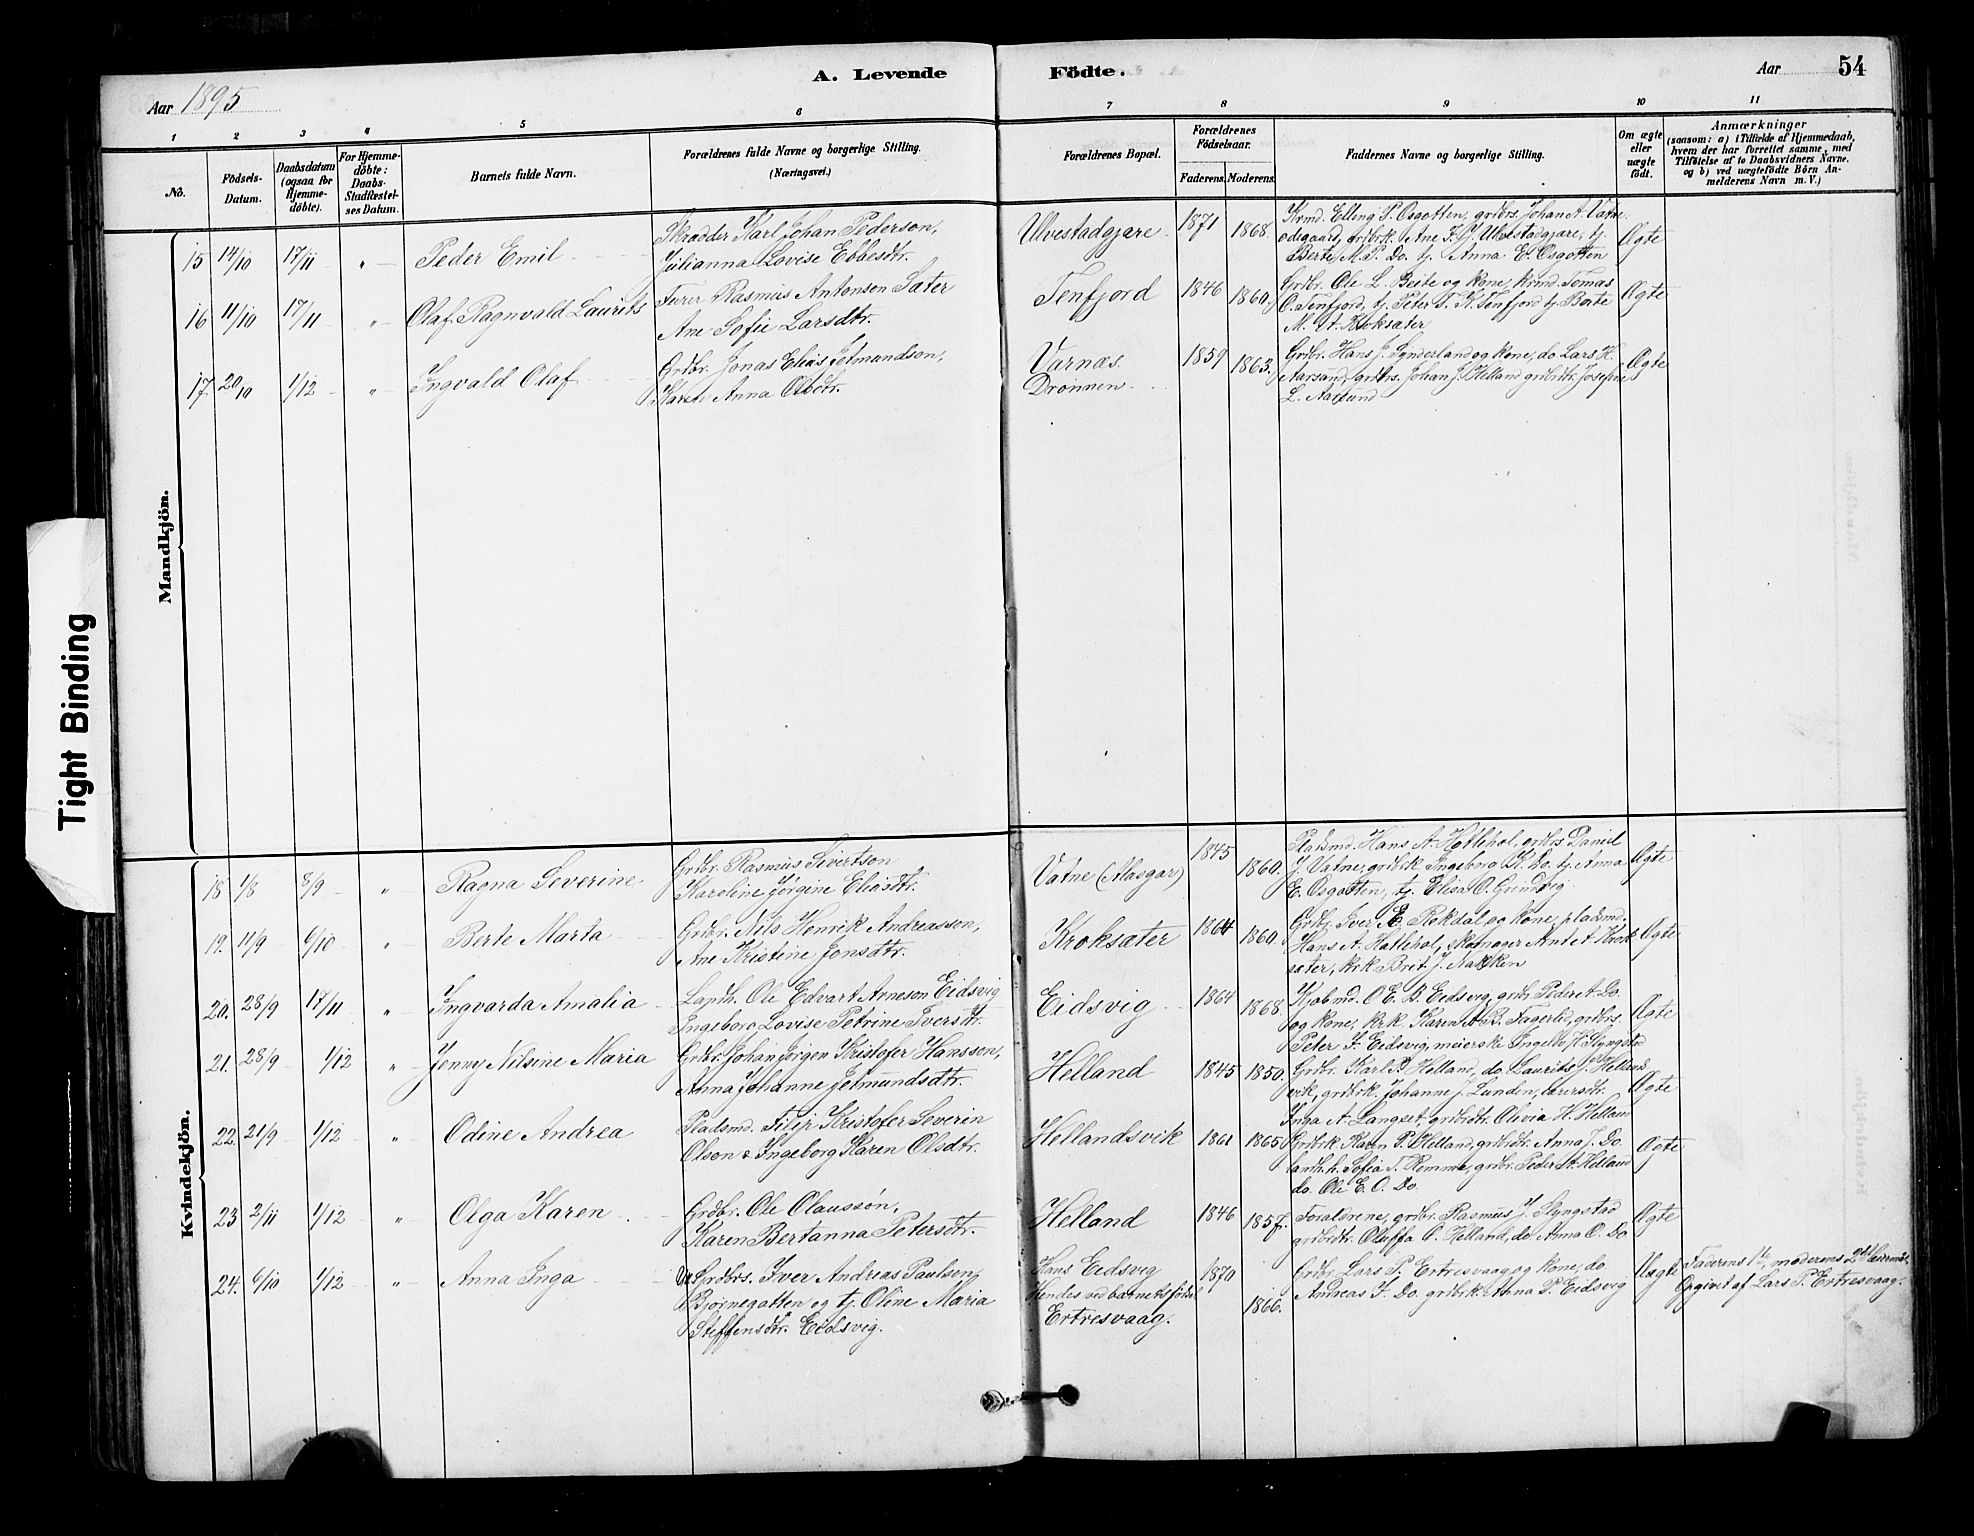 A. Levende
Födte.
Aar 54
Aar 1895
1 2 3 4 5 6 7 8 9 10 11
No.
Födsels-
Datum.
Daabsdatum
(ogsaa for
Hjemme-
döbte).
For Hjemme-
döbte:
Daabs-
Stadfæstel-
ses Datum.
Barnets fulde Navn.
Forældrenes fulde Navne og borgerlige Stilling.
(Næringsvei.)
Forældrenes Bopæl.
Forældrenes
Födselsaar.
Faderens. Moderens.
Faddernes Navne og borgerlige Stilling.
Om ægte
eller
uægte
födt.
Anmærkninger
(saasom: a) i Tilfælde af Hjemmedaab,
hvem der har forrettet samme, med
Tilföielse af to Daabsvidners Navne.
og b) ved uægtefödte Börn An-
melderens Navn m. V.)
Mandkjön.
15 14/10 17/11 " Peder Emil
Skrædder Karl Johan Pederson,
Julianna Lovise Ebbesdtr.
Ulvestadgjære 1871 1868.
Krmd. Elling P. Osgotten, grdbrs. Johan A. Vatne
ødegaard, grdbrk. Ane F. J. Ulvestadgjære, tj.
Berte M. P. Do. tj. Anna E. Osgotten
Ægte
16 11/10 17/11 " Olaf Ragnvald Laurits
Furer Rasmus Antonsen Sæter
Ane Sofie Larsdtr.
Tenfjord 1846 1860.
Grdbr. Ole L. Beite og Kone, Krmd. Tomas
O. Tenfjord, tj. Peter T. K. Tenfjord tj. Berte
M. A. Kroksæter
Ægte
17 20/10 1/12 " Ingvald Olaf
Grdbr. Jonas Elias Jetmundson,
Karen Anna Olsdtr.
Varnæs
Drønnen 1859 1863.
Grdbr. Hans J. Synderland og Kone, do Lars H.
Aarsund, grdbrs. Johan J. Helland grdbrdtr. Josefine
L. Aarsund
Ægte
Tight Binding
Kvindekjön.
18 1/8 8/9 " Ragna Severine
Grdbr. Rasmus Sivertson
Karoline Jørgine Eliasdtr.
Vatne (Masgar) 1845 1860.
Pladsmd. Hans A. Hatlehol, grdbrs Daniel
J. Vatne, grdbrk Ingeborg K. Do. tj. Anna
E. Osgotten, tj. Elisa O. Grindvig.
Ægte
19. 11/9 6/10 " Berte Marta
Grdbr. Nils Henrik Andreasson,
Ane Kristine Jonsdtr.
Kroksæter 1864 1860.
Grdbr. Iver E. Rekdal og Kone, pladsmd.
Hans A. Hatlehol, skomager Arnt A. Krok-
sæter, krk Brit J. Nakken
Ægte
20. 28/9 17/11 " Ingvarda Amalia
Landh. Ole Edvart Arneson Eidsvig
Ingeborg Lovise Petrine Iversdtr.
Eidsvig 1864 1868.
Kjøbmd. O. E. B. Eidsvig, grdbr. Peder A. Do.
og Kone, krk. Karen A. B. Fagerli, grdbrs.
Peter I. Eidsvig, meierske Ingeb. H. Slyngstad
Ægte
21. 28/9 1/12 " Jenny Nilsine Maria
Grdbr. Johan Jørgen Kristofer Hansson,
Anna Johanne Jetmundsdtr.
Helland 1845 1850.
Grdbr. Karl P. Helland, do. Laurits J. Hellands
vik, grdbrk. Johanne J. Lunden, lærersdtr.
Inga A. Langset, grdbrdtr. Olivia H. Helland
Ægte
22. 21/9 1/12 " Odine Andrea
Pladsmd. Filip Kristofer Severin
Olson & Ingeborg Karen Olsdtr.
Hellandsvik 1861 1865.
Grdbrk. Karen P. Helland, grdbrdtr. Anna J. Do.
landh.k. Sofia T. Remme, grdbr. Peder A. Helland
do. Ole E. O. Do.
Ægte
23 2/11 1/12 " Olga Karen
Grdbr. Ole Olausson,
Karen Bertanna Petersdtr.
Helland 1846 1857.
Forældrene, grdbr. Rasmus J. Slyngstad
grdbrdtr. Oluffa O. Helland, do Anna O. Do
Ægte
24. 6/10 1/12 " Anna Inga
Grdbrs. Iver Andreas Paulson,
Bjørnegotten og tj. Oline Maria
Steffensdtr. Eidsvig.
Hans Eidsvig
Hendes ved barnets fødsel
Ertresvaag. 1870 1866.
Grdbr. Lars P. Ertresvaag og Kone, do.
Andreas I. Do. grdbrk. Anna P. Eidsvig
Uægte
Faderens 1ste, moderens 2det leiermaal.
Opgivet af Lars P. Ertresvaag.